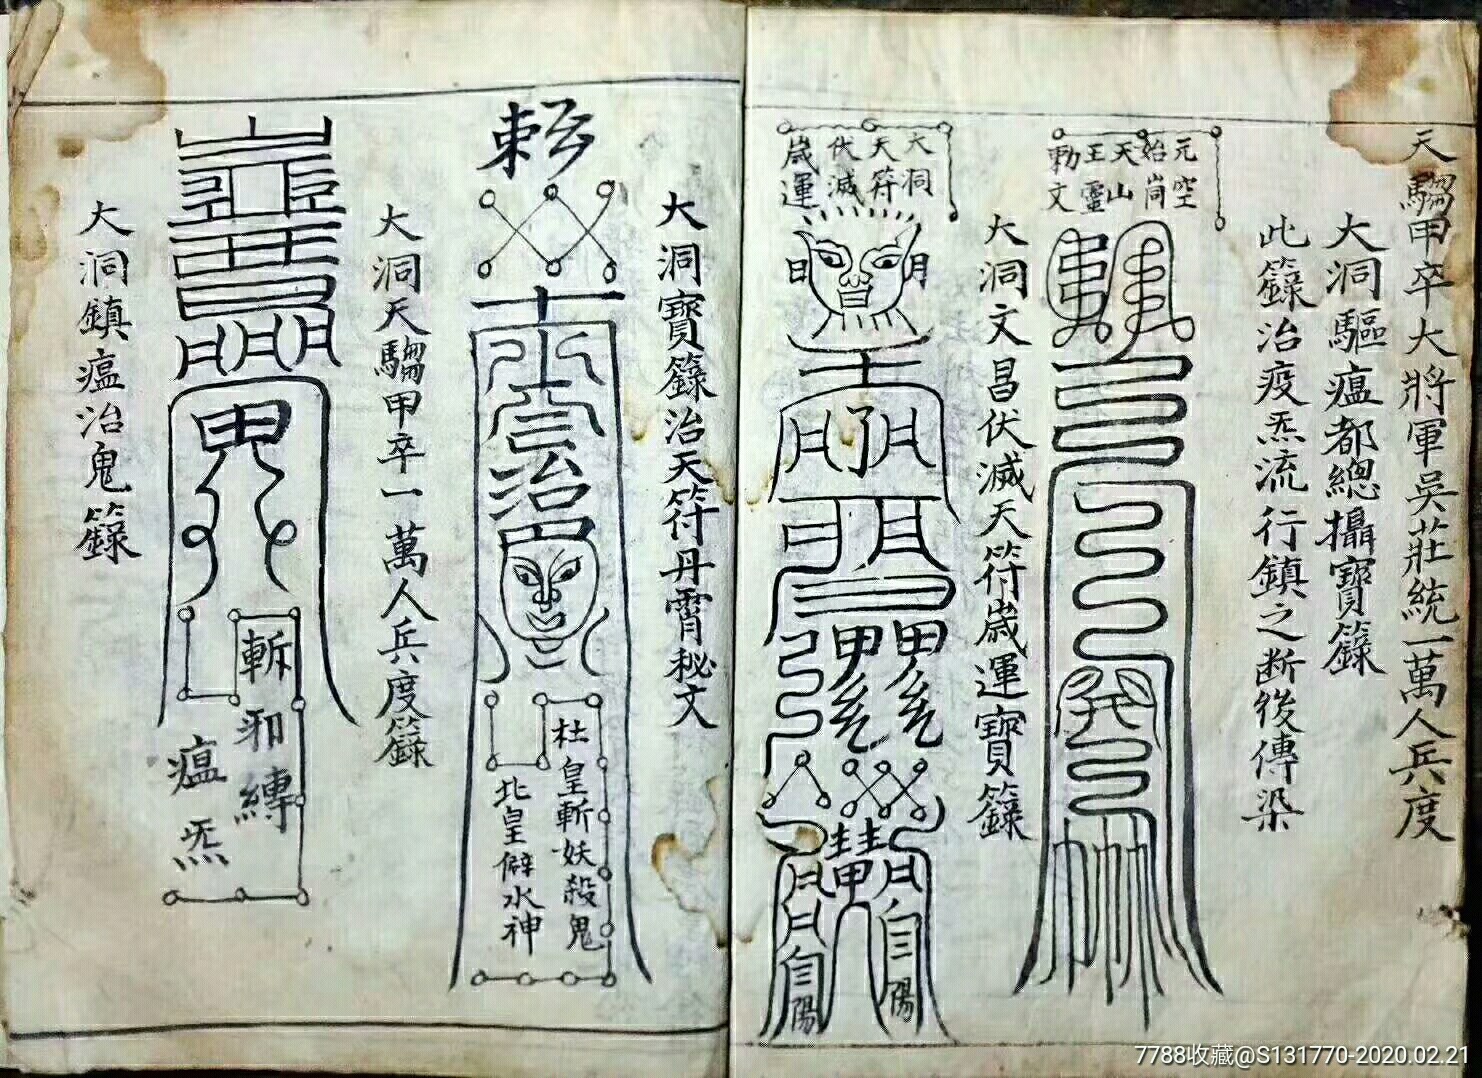 天騶甲卒大將軍吳莊統一萬人兵度
大洞驅瘟都總攝寶籙
此籙治疫炁流行鎮之断後傳染
元空
始崗
天山
王靈
勅文
大洞文昌伏滅天符歲運寶籙
大洞
天符
伏滅
歲運
日
月
大洞寶籙治天符丹霄秘文
治
杜皇斬妖殺鬼
北皇僻水神
大洞天騶甲卒一萬人兵度籙
斬邪縛
瘟炁
大洞鎮瘟治鬼籙
7788收藏@S131770-2020.02.21